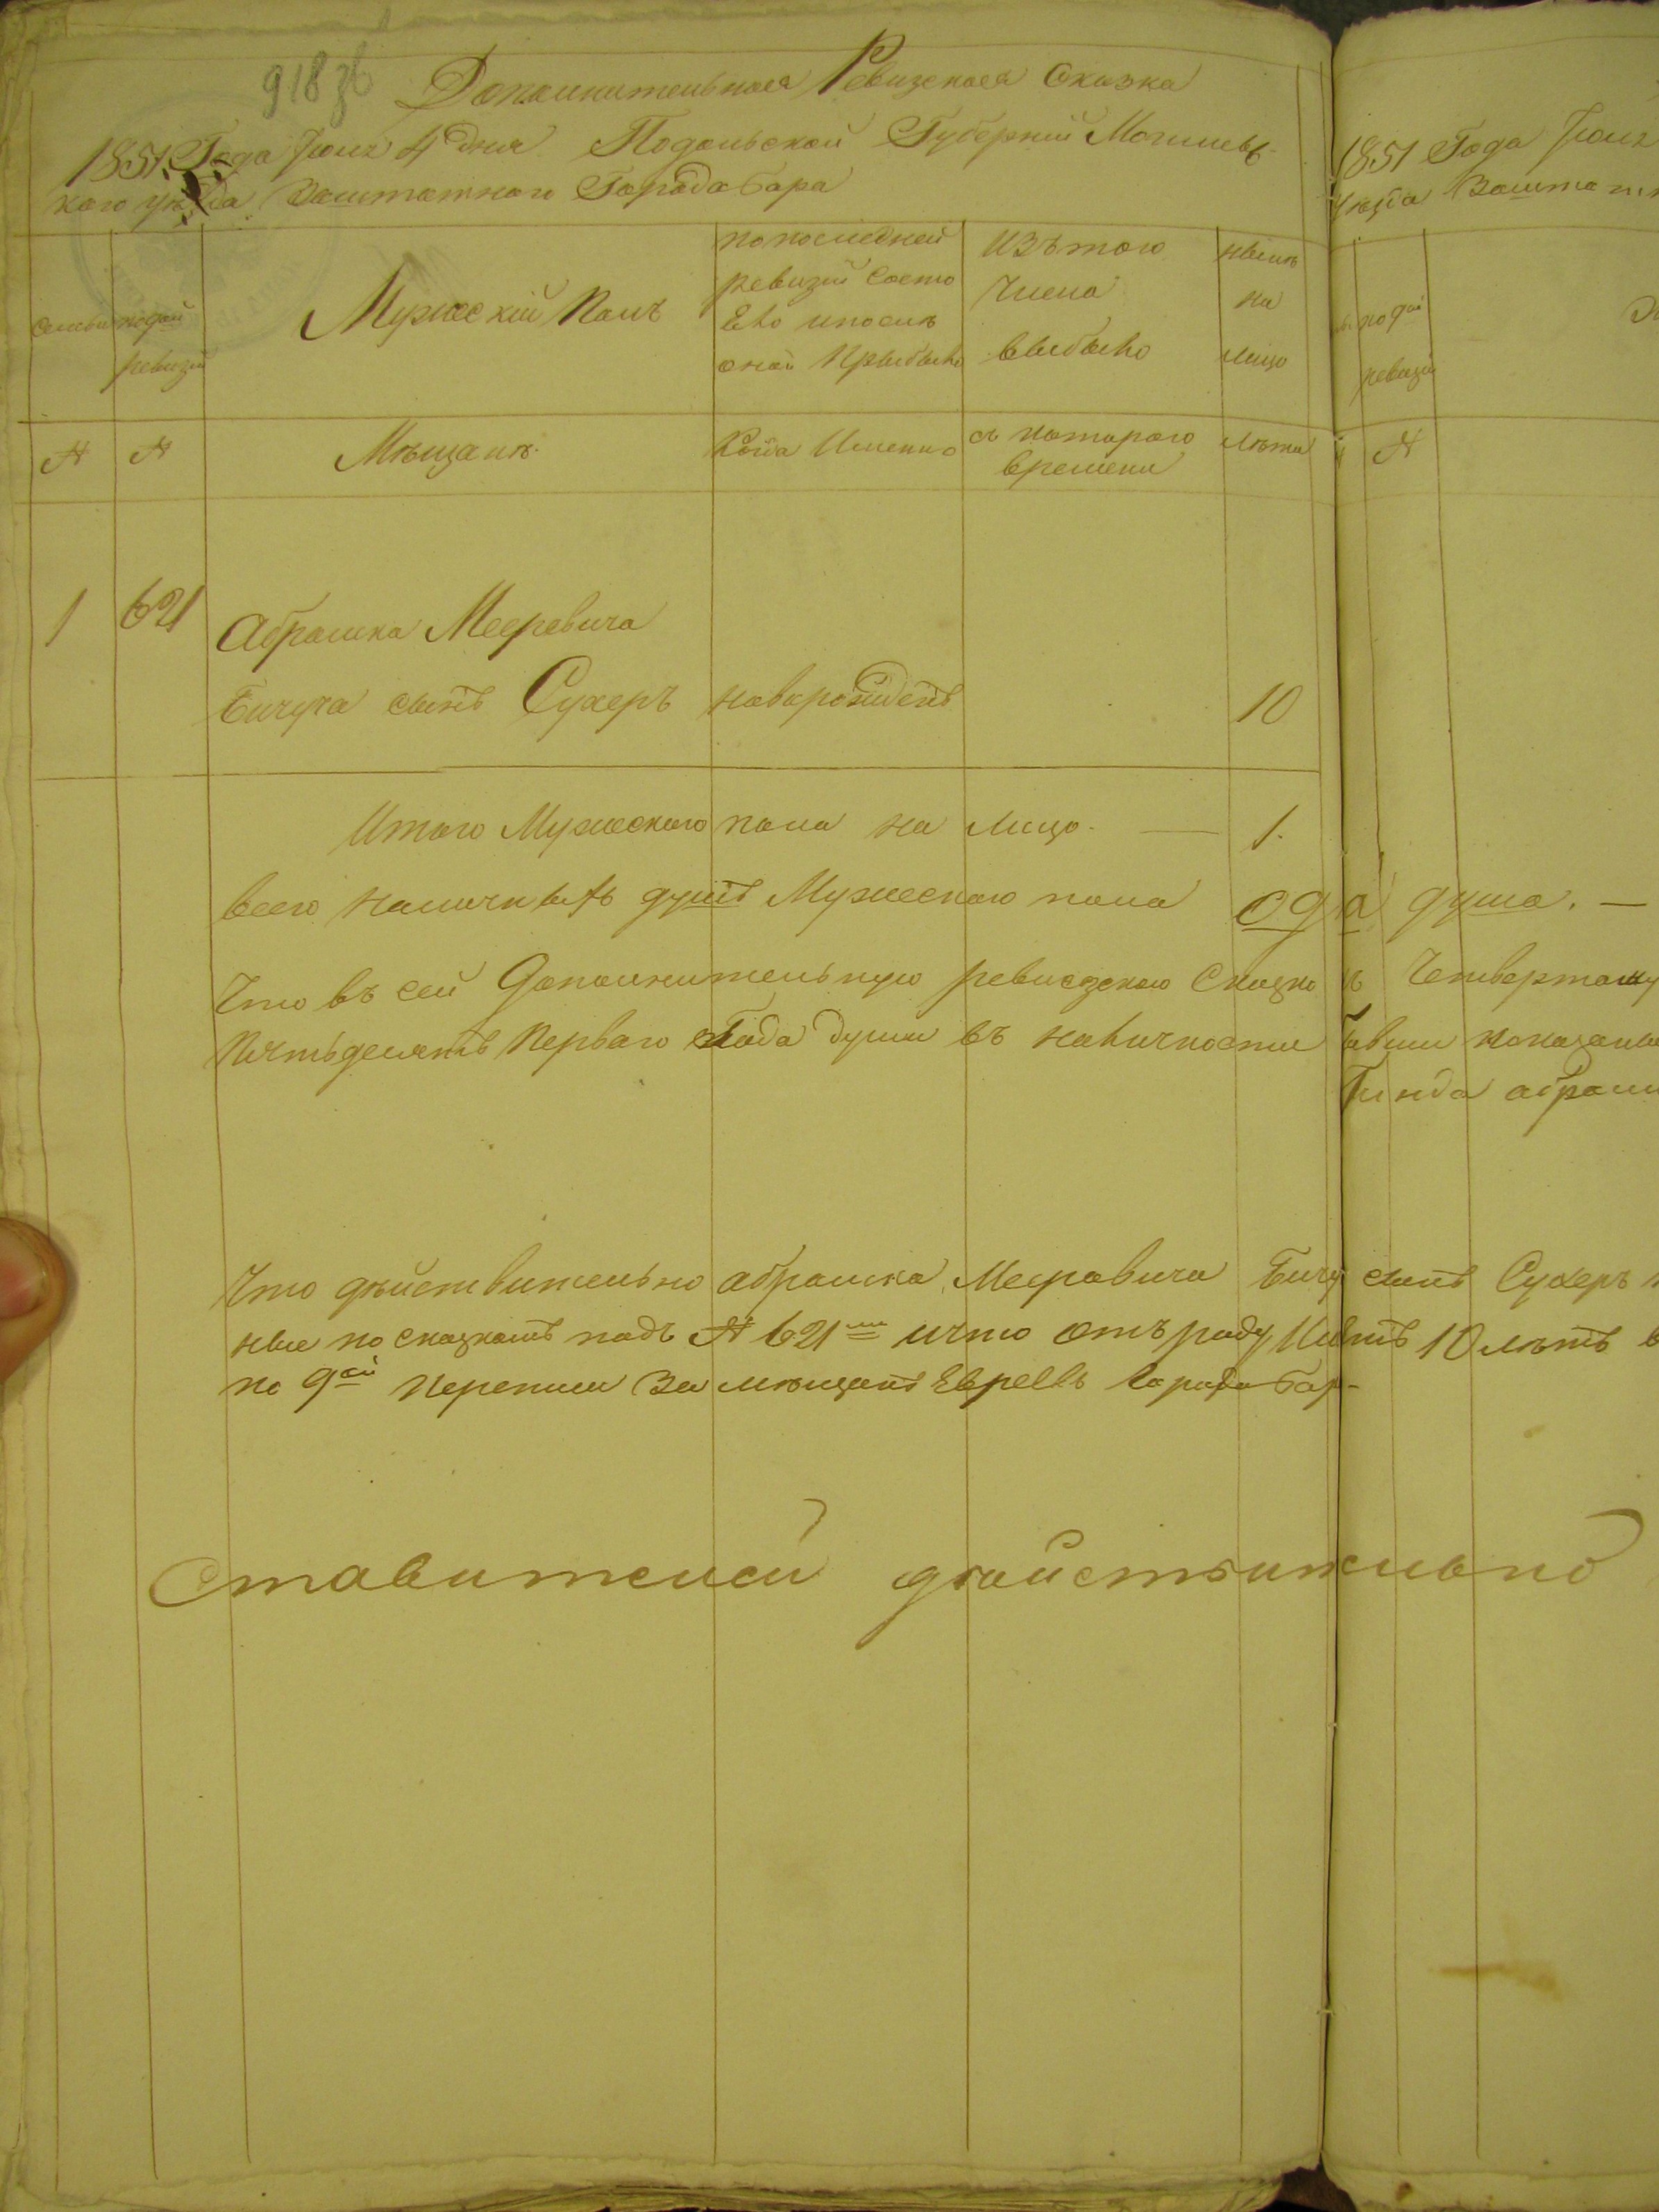 918 зв
Дополнительная Ревизская Сказка
1851 Года Июля 4 дня Подольской Губерніи Могилевс-
кого уѣзда Заштатного Города Бара
семьи
по 9ой ревизіи
Мужескій Полъ
по последней ревизіи состо Ело и после оной Прыбыло
Изъ того Числа выбыло
ныне на лицо
№
№
Мѣщане.
Когда Именно
съ которого времени
Лѣта
1 621 Абрашка Мееровича
Бичуча сынъ Сухеръ новорожденъ 10
Итого Мужеского пола на лицо. — 1.
Всего наличныхъ душъ Мужеского пола од а душа. —
Что въ сей Дополнительную ревиезскою Сказко Четвертому
Пятьдесятъ Перваго Года души въ наличности показаны
абраш
Что дѣйствительно абрашка Меэровича Бичу сынъ Сухеръ
ные по сказкамъ подъ № 621 и что отъ роду Имѣетъ 10 лѣтъ
по 9ой переписи За мѣщанъ Евреевъ города Бар-
ставителей дѣйствительно
1851 Года Июля
Уѣзда Заштатн
по 9ой ревизіи
№